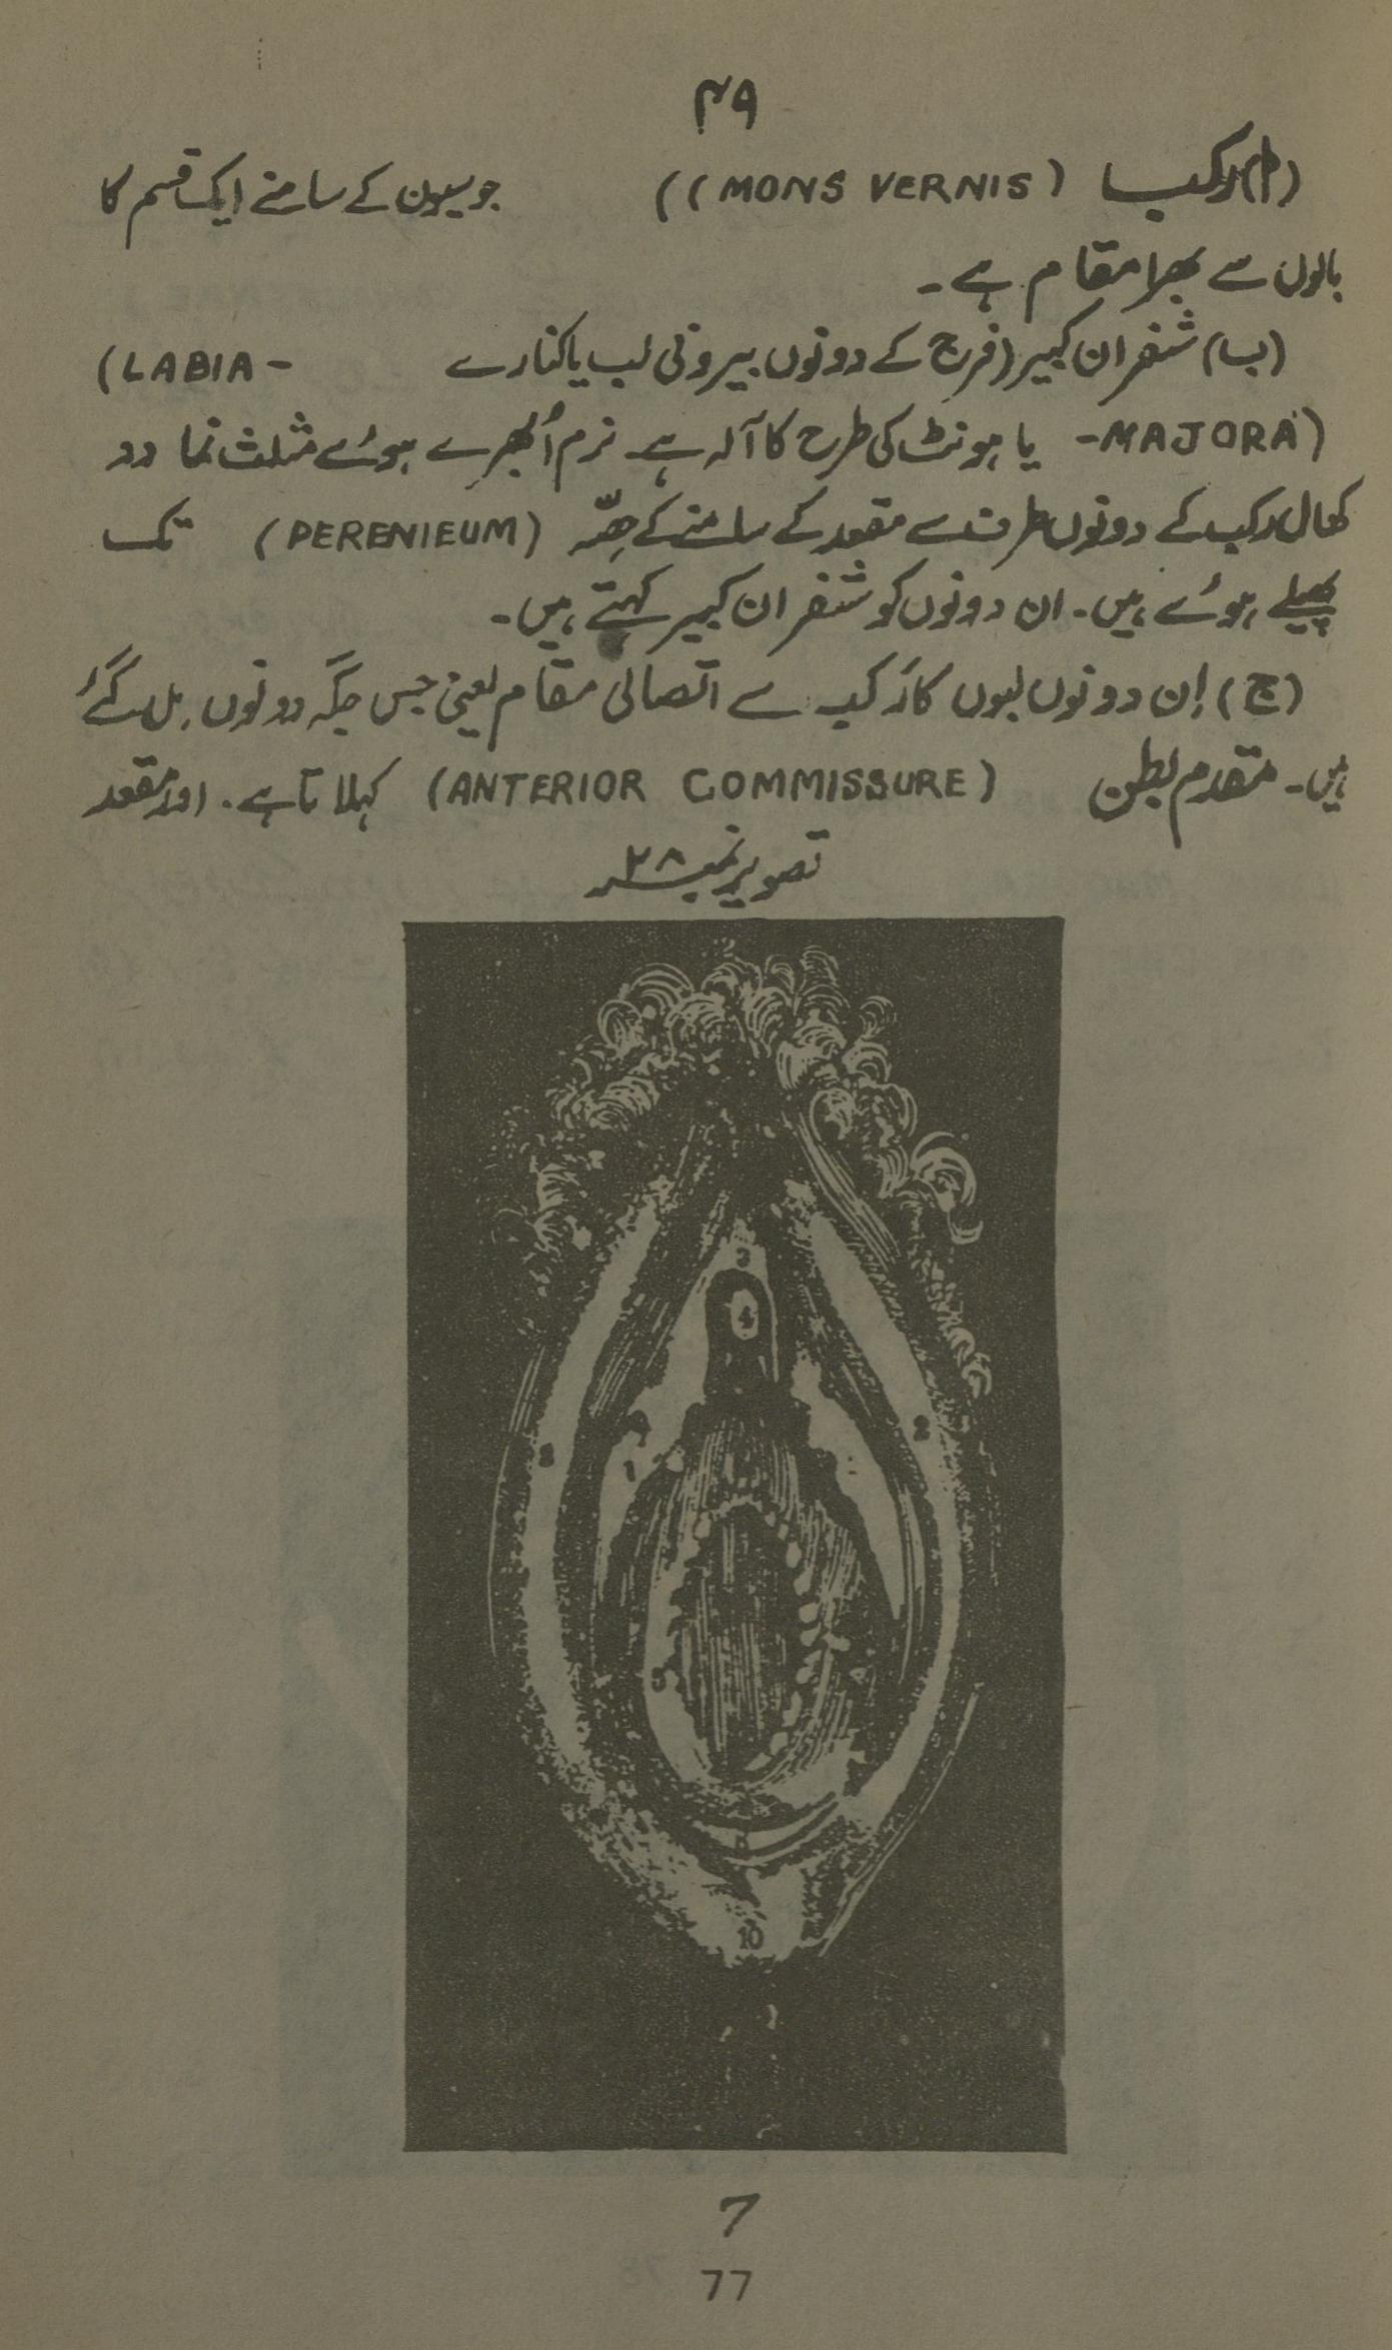 ۴۹
(ا) رکب (MONS VERNIS)) جو سیون کے سامنے ایک قسم کا
بالوں سے بھرا مقام ہے۔
(ب) شفران کبیر (فرج کے دونوں بیرونی لب یا کنارے (LABIA-
-MAJORA) یا ہونٹ کی طرح کا آلہ ہے۔ نرم اُبھرے ہوئے مثلث نما دو
کھال رکب کے دونوں طرف سے مقعد کے سامنے کے حِصّہ (PERENIEUM) تک
پھیلے ہوئے ہیں۔ ان دونوں کو شفران کبیر کہتے ہیں۔
(ج) اِن دونوں لبوں کا رَکب سے اتصالی مقام یعنی جس جگہ دونوں مل گئے
ہیں۔ متقدم بطن (ANTERIOR COMMISSURE) کہلاتا ہے۔ اور مقعد
تصویر نمبر ۲۸
3
4
2
1
5
10
7
77